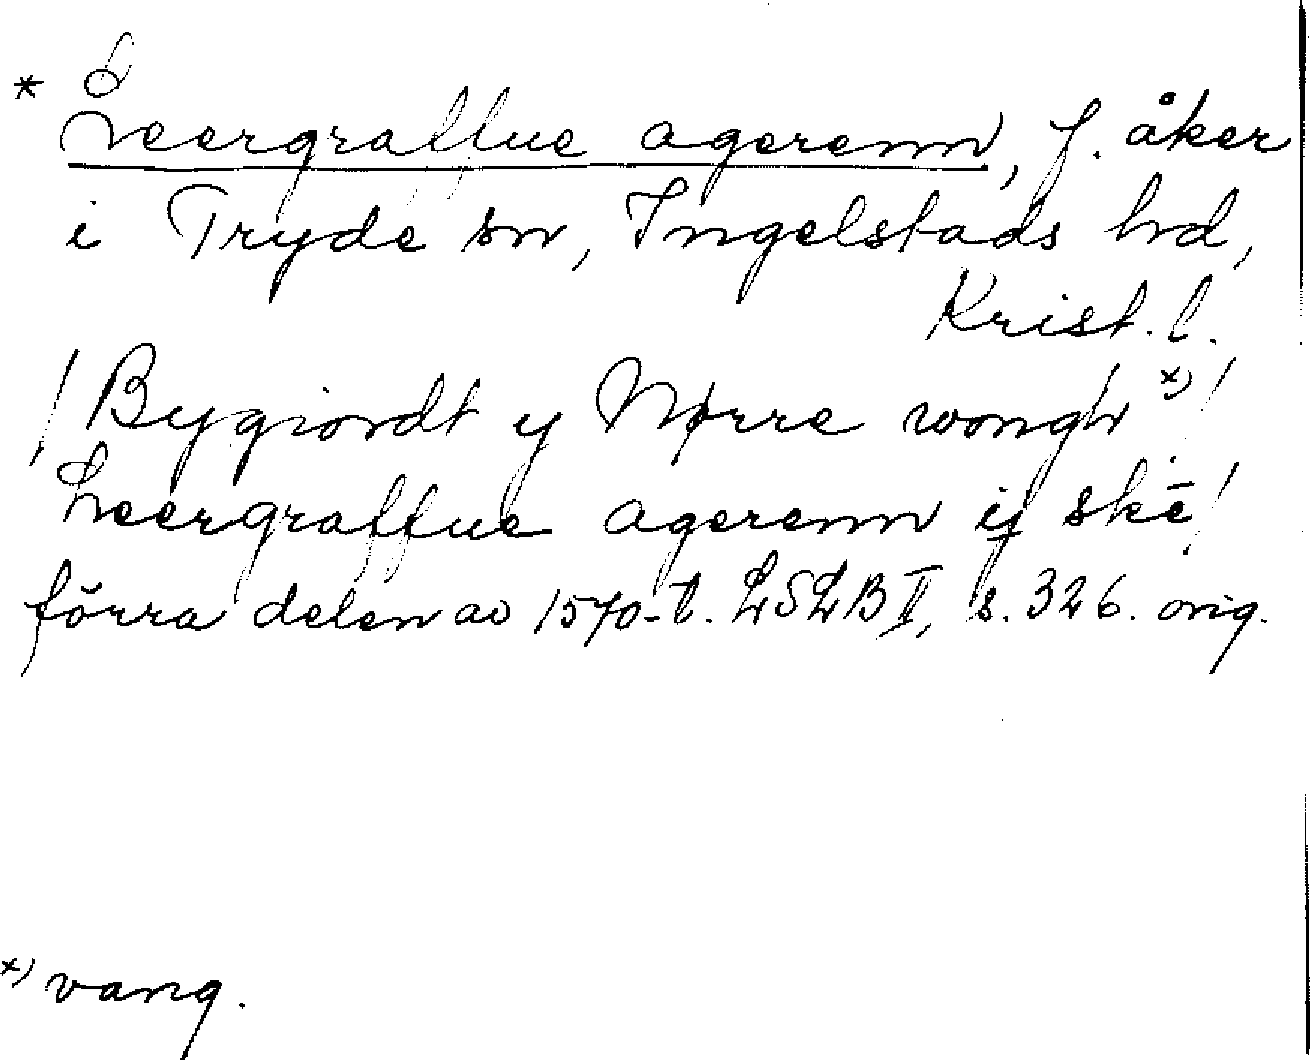 * Leergraffue agerenn, f. åker
i Tryde sn, Ingelstads hd,
Krist. l.
/ Bygiordt y Nørre wongh x) /
Leergraffue agerenn ij skē /
förra delen av 1570-t. LSLB II, s. 326. orig.
x) vang.